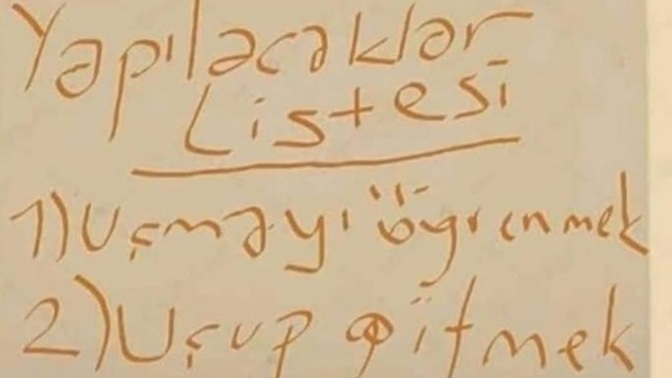 Yapılacaklar
Listesi
1) Uçmayı öğrenmek
2) Uçup gitmek